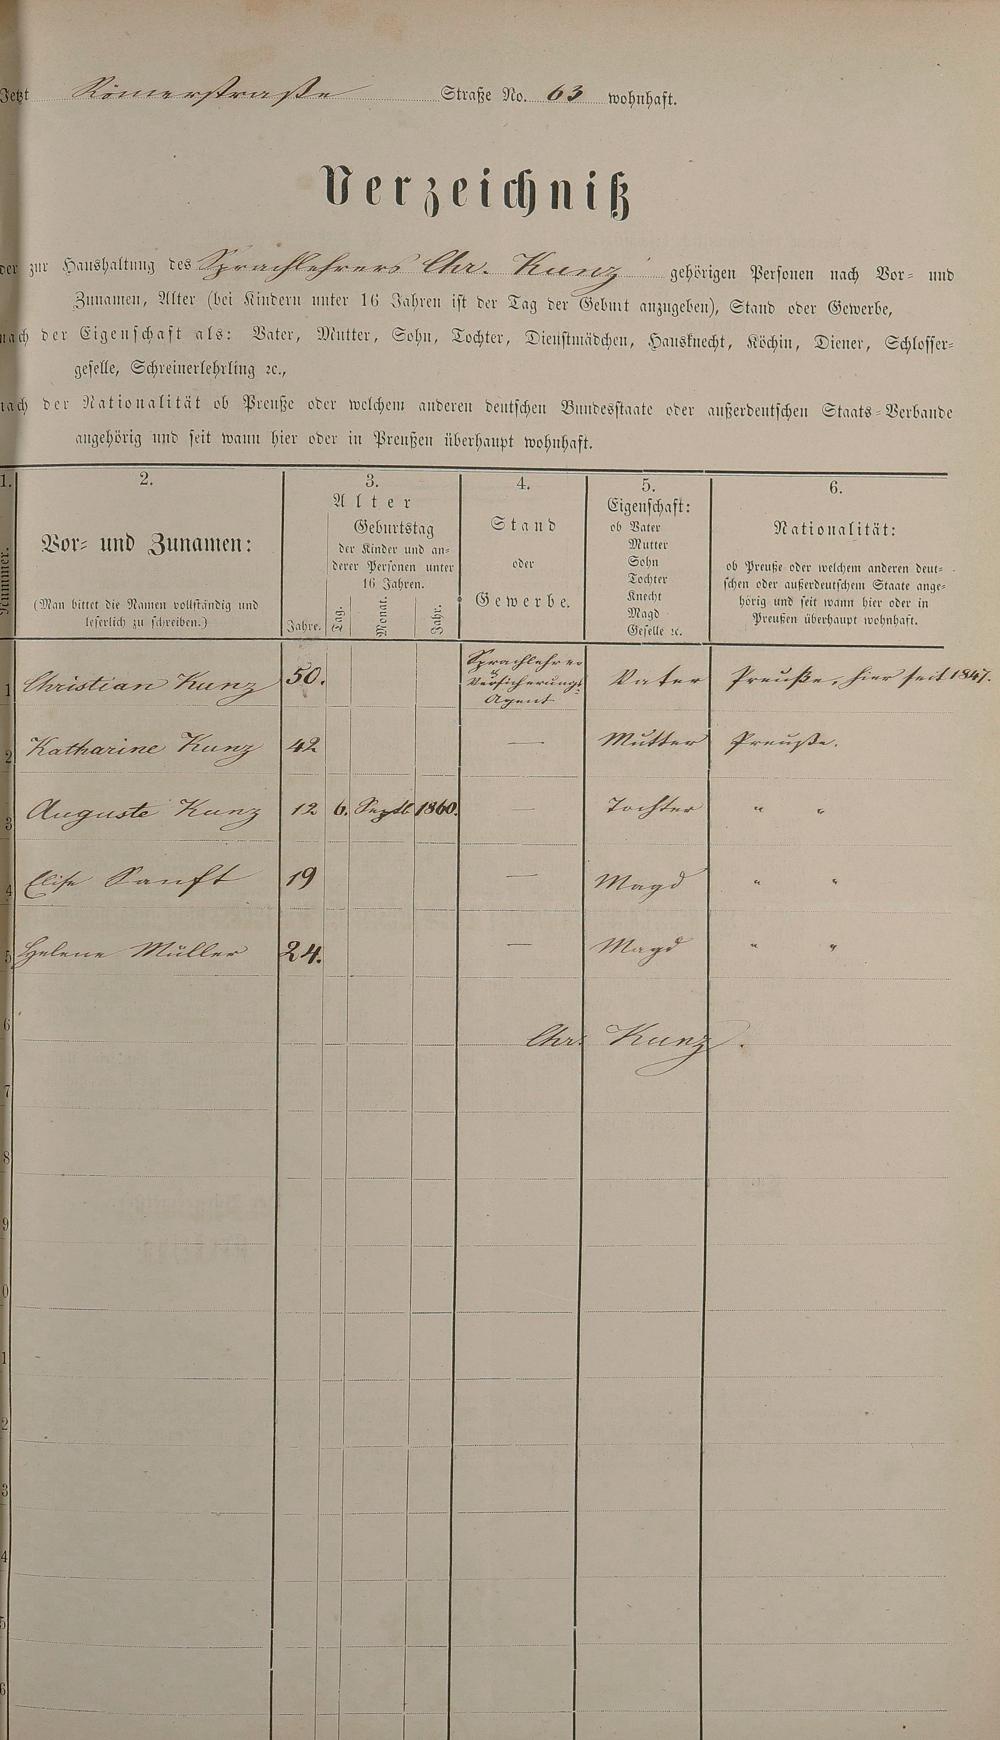 Jetzt Römerstraße Straße No. 63 wohnhaft.
Verzeichniß
der zur Haushaltung des Sprachlehrers Chr. Kunz gehörigen Personen nach Vor- und
Zunamen, Alter (bei Kindern unter 16 Jahren ist der Tag der Geburt anzugeben), Stand oder Gewerbe,
nach der Eigenschaft als: Vater, Mutter, Sohn, Tochter, Dienstmädchen, Hausknecht, Köchin, Diener, Schlosser-
geselle, Schreinerlehrling ꝛc.,
nach der Nationalität ob Preuße oder welchem anderen deutschen Bundesstaate oder außerdeutschen Staats-Verbande
angehörig und seit wann hier oder in Preußen überhaupt wohnhaft.
1. 2. 3. 4. 5. 6.
Nummer.
Vor- und Zunamen:
(Man bittet die Namen vollständig und
leserlich zu schreiben.)
Alter
Jahre.
Geburtstag
der Kinder und an-
derer Personen unter
16 Jahren.
Tag. Monat. Jahr.
Stand
oder
Gewerbe.
Eigenschaft:
ob Vater
Mutter
Sohn
Tochter
Knecht
Magd
Geselle ꝛc.
Nationalität:
ob Preuße oder welchem anderen deut-
schen oder außerdeutschem Staate ange-
hörig und seit wann hier oder in
Preußen überhaupt wohnhaft.
1 Christian Kunz 50. Sprachlehrer u. Versicherungs- Agent Vater Preuße, hier seit 1847.
2 Katharine Kunz 42 — Mutter Preuße.
3 Auguste Kunz 12 6. Septb 1860. — Tochter " "
4 Elise Sanft 19 — Magd " "
5 Helene Müller 24. — Magd " "
6 Chr. Kunz.
7
8
9
0
1
2
3
4
5
6